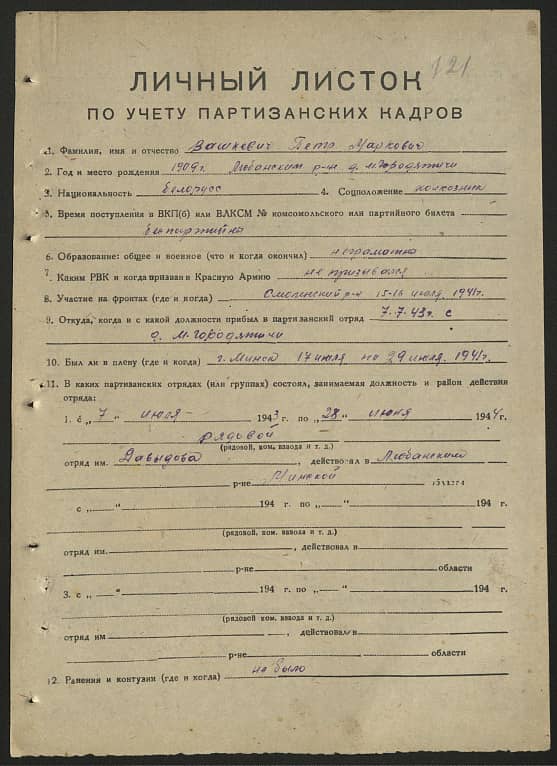 121
ЛИЧНЫЙ ЛИСТОК
ПО УЧЕТУ ПАРТИЗАНСКИХ КАДРОВ
1. Фамилия, имя и отчество Вашкевич Петр Маркович
2. Год и место рождения 1909г. Любанский р-н д. М-Городятичи
3. Национальность белорусс 4. Соцположение колхозник
5. Время поступления в ВКП(б) или ВЛКСМ № комсомольского или партийного билета
беспартийный
6. Образование: общее и военное (что и когда окончил) неграмотн
7. Каким РВК и когда призван в Красную Армию не призывался
8. Участие на фронтах (где и когда) Смоленский р-н 15-16 июля 1941г.
9. Откуда, когда и с какой должности прибыл в партизанский отряд 7.7.43г. с
д. М-Городятичи
10. Был ли в плену (где и когда) г. Минск 17 июля по 29 июля 1941г.
11. В каких партизанских отрядах (или группах) состоял, занимаемая должность и район действия
отряда:
1. с „7“ июля 1943 г. по „28“ июня 1944г.
рядовой
(рядовой, ком. взвода и т. д.)
отряд им. Давыдова, действовал в Любанском
р-не Минской области
с „ “ 194 г. по „ “ 194 г.
(рядовой, ком. взвода и т. д.)
отряд им. , действовал в
р-не области
3. с „ “ 194 г. по „ “ 194 г.
(рядовой, ком. взвода и т. д.)
отряд им , действовал в
р-не области
12. Ранения и контузии (где и когда) не было